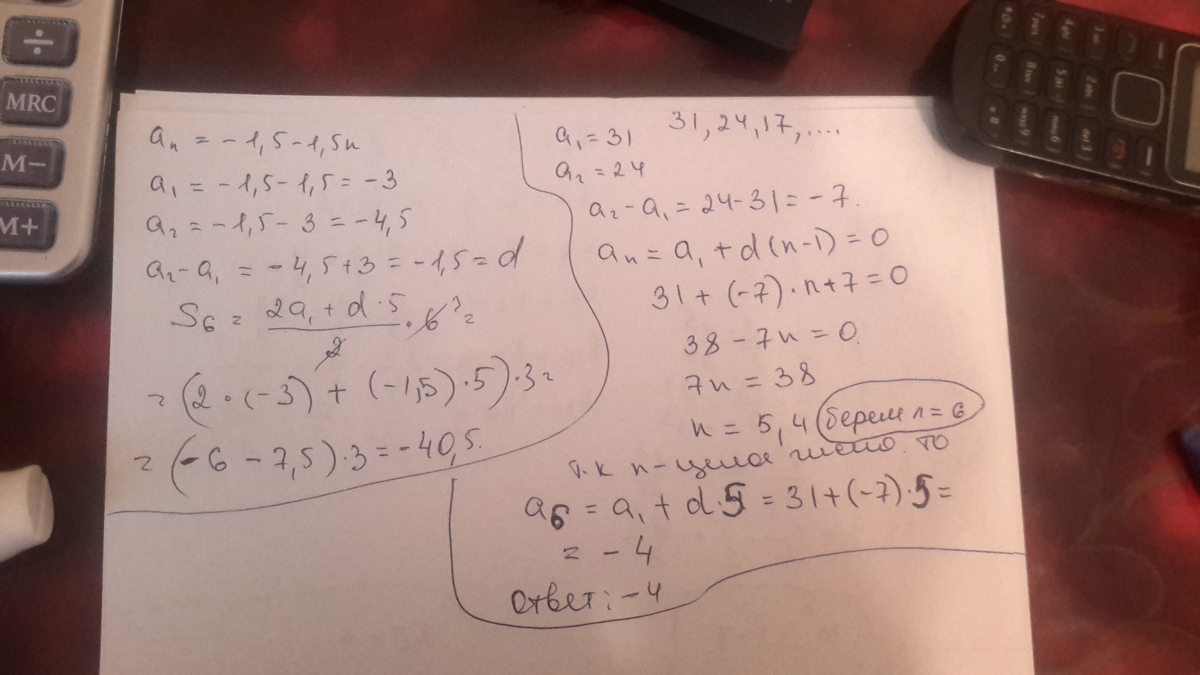 ÷
MRC
M−
M+
aₙ = −1,5−1,5n
a₁ = −1,5−1,5 = −3
a₂ = −1,5−3 = −4,5
a₂−a₁ = −4,5+3 = −1,5 = d
S₆ = (2a₁ + d·5)/2 · 6 ³ =
= (2·(−3) + (−1,5)·5)·3 =
= (−6 −7,5)·3 = −40,5.
31, 24, 17, ....
a₁ = 31
a₂ = 24
a₂−a₁ = 24−31 = −7.
aₙ = a₁ + d(n−1) = 0
31 + (−7)·n+7 = 0
38 − 7n = 0.
7n = 38
n = 5,4 берем n = 6
т.к n−целое число. то
a₆ = a₁ + d·5 = 31+(−7)·5 =
= −4
Ответ: −4